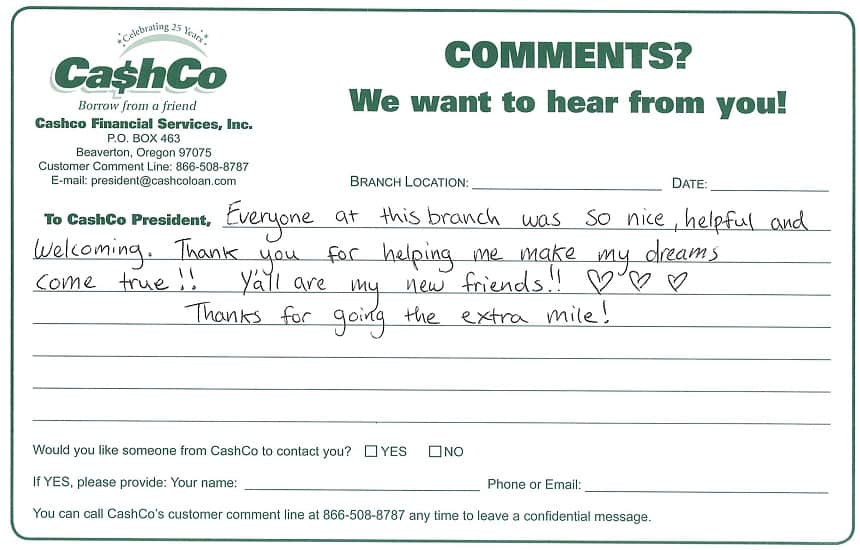 Celebrating 25 Years
Ca$hCo
Borrow from a friend
Cashco Financial Services, Inc.
P.O. BOX 463
Beaverton, Oregon 97075
Customer Comment Line: 866-508-8787
E-mail: president@cashcoloan.com
COMMENTS?
We want to hear from you!
BRANCH LOCATION: DATE:
To CashCo President, Everyone at this branch was so nice, helpful and
Welcoming. Thank you for helping me make my dreams
come true!! Y'all are my new friends!! ♡♡♡
Thanks for going the extra mile!
Would you like someone from CashCo to contact you? ☐ YES ☐ NO
If YES, please provide: Your name: Phone or Email:
You can call CashCo's customer comment line at 866-508-8787 any time to leave a confidential message.